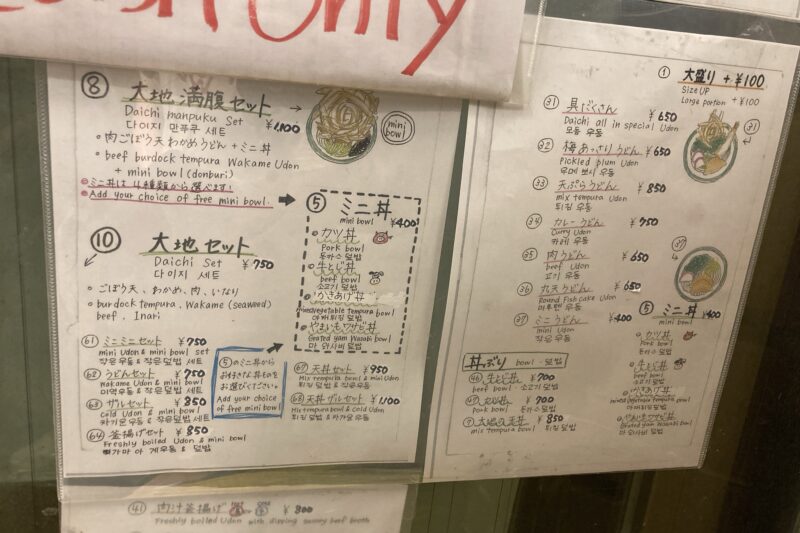 Only
⑧ 大地満腹セット →
Daichi manpuku Set ¥1,100
다이지 만푸쿠 세트
• 肉ごぼう天わかめうどん + ミニ丼
• beef burdock tempura Wakame Udon
+ mini bowl (donburi)
mini bowl
ミニ丼は4種類から選べます!
Add your choice of free mini bowl.
⑩ 大地セット
Daichi Set ¥750
다이지 세트
• ごぼう天、わかめ、肉、いなり
• burdock tempura, Wakame (seaweed)
beef, Inari
⑤ ミニ丼
mini bowl ¥400
カツ丼
Pork bowl
돈카스 덮밥
牛とじ丼
beef bowl
소고기 덮밥
かきあげ丼
mixed vegetable tempura bowl
야채튀김 덮밥
やまいもワサビ丼
Grated yam Wasabi bowl
마 와사비 덮밥
61 ミニミニセット ¥750
mini Udon & mini bowl set
작은우동 & 작은덮밥 세트
62 うどんセット ¥750
Wakame Udon & mini bowl
미역우동 & 작은덮밥 세트
63 ザルセット ¥850
Cold Udon & mini bowl
차가운우동 & 작은덮밥 세트
64 釜揚げセット ¥850
Freshly boiled Udon & mini bowl
⑤のミニ丼から
お好きな丼ものを
お選びください。
Add your choice
of free mini bowl
67 天丼セット ¥950
Mix tempura bowl & mini Udon
튀김 덮밥 & 작은우동
68 天丼ザルセット ¥1,100
Mix tempura bowl & Cold Udon
튀김 덮밥 & 차가운 우동
41 肉汁釜揚げ ¥800
Freshly boiled Udon with dipping savory beef broth
① 大盛り + ¥100
Size UP
Large portion + ¥100
31 具だくさん ¥650
Daichi all in special Udon
모듬 우동
31
32 梅あっさりうどん ¥650
Pickled plum Udon
33 天ぷらうどん ¥850
mix tempura Udon
튀김 우동
34 カレーうどん ¥750
Curry Udon
카레 우동
35 肉うどん ¥650
beef Udon
고기 우동
36 丸天うどん ¥650
Round Fish cake Udon
37 ミニうどん ¥400
mini Udon
작은 우동
⑤ ミニ丼 ¥400
mini bowl
カツ丼
Pork bowl
돈카스 덮밥
牛とじ丼
beef bowl
소고기 덮밥
かきあげ丼
mixed vegetable tempura bowl
야채튀김 덮밥
やまいもワサビ丼
Grated yam Wasabi bowl
마 와사비 덮밥
丼ぶり bowl 덮밥
46 牛とじ丼 ¥700
beef bowl 소고기 덮밥
47 カツ丼 ¥700
Pork bowl 돈카스 덮밥
大地天丼 ¥850
mix tempura bowl 튀김 덮밥